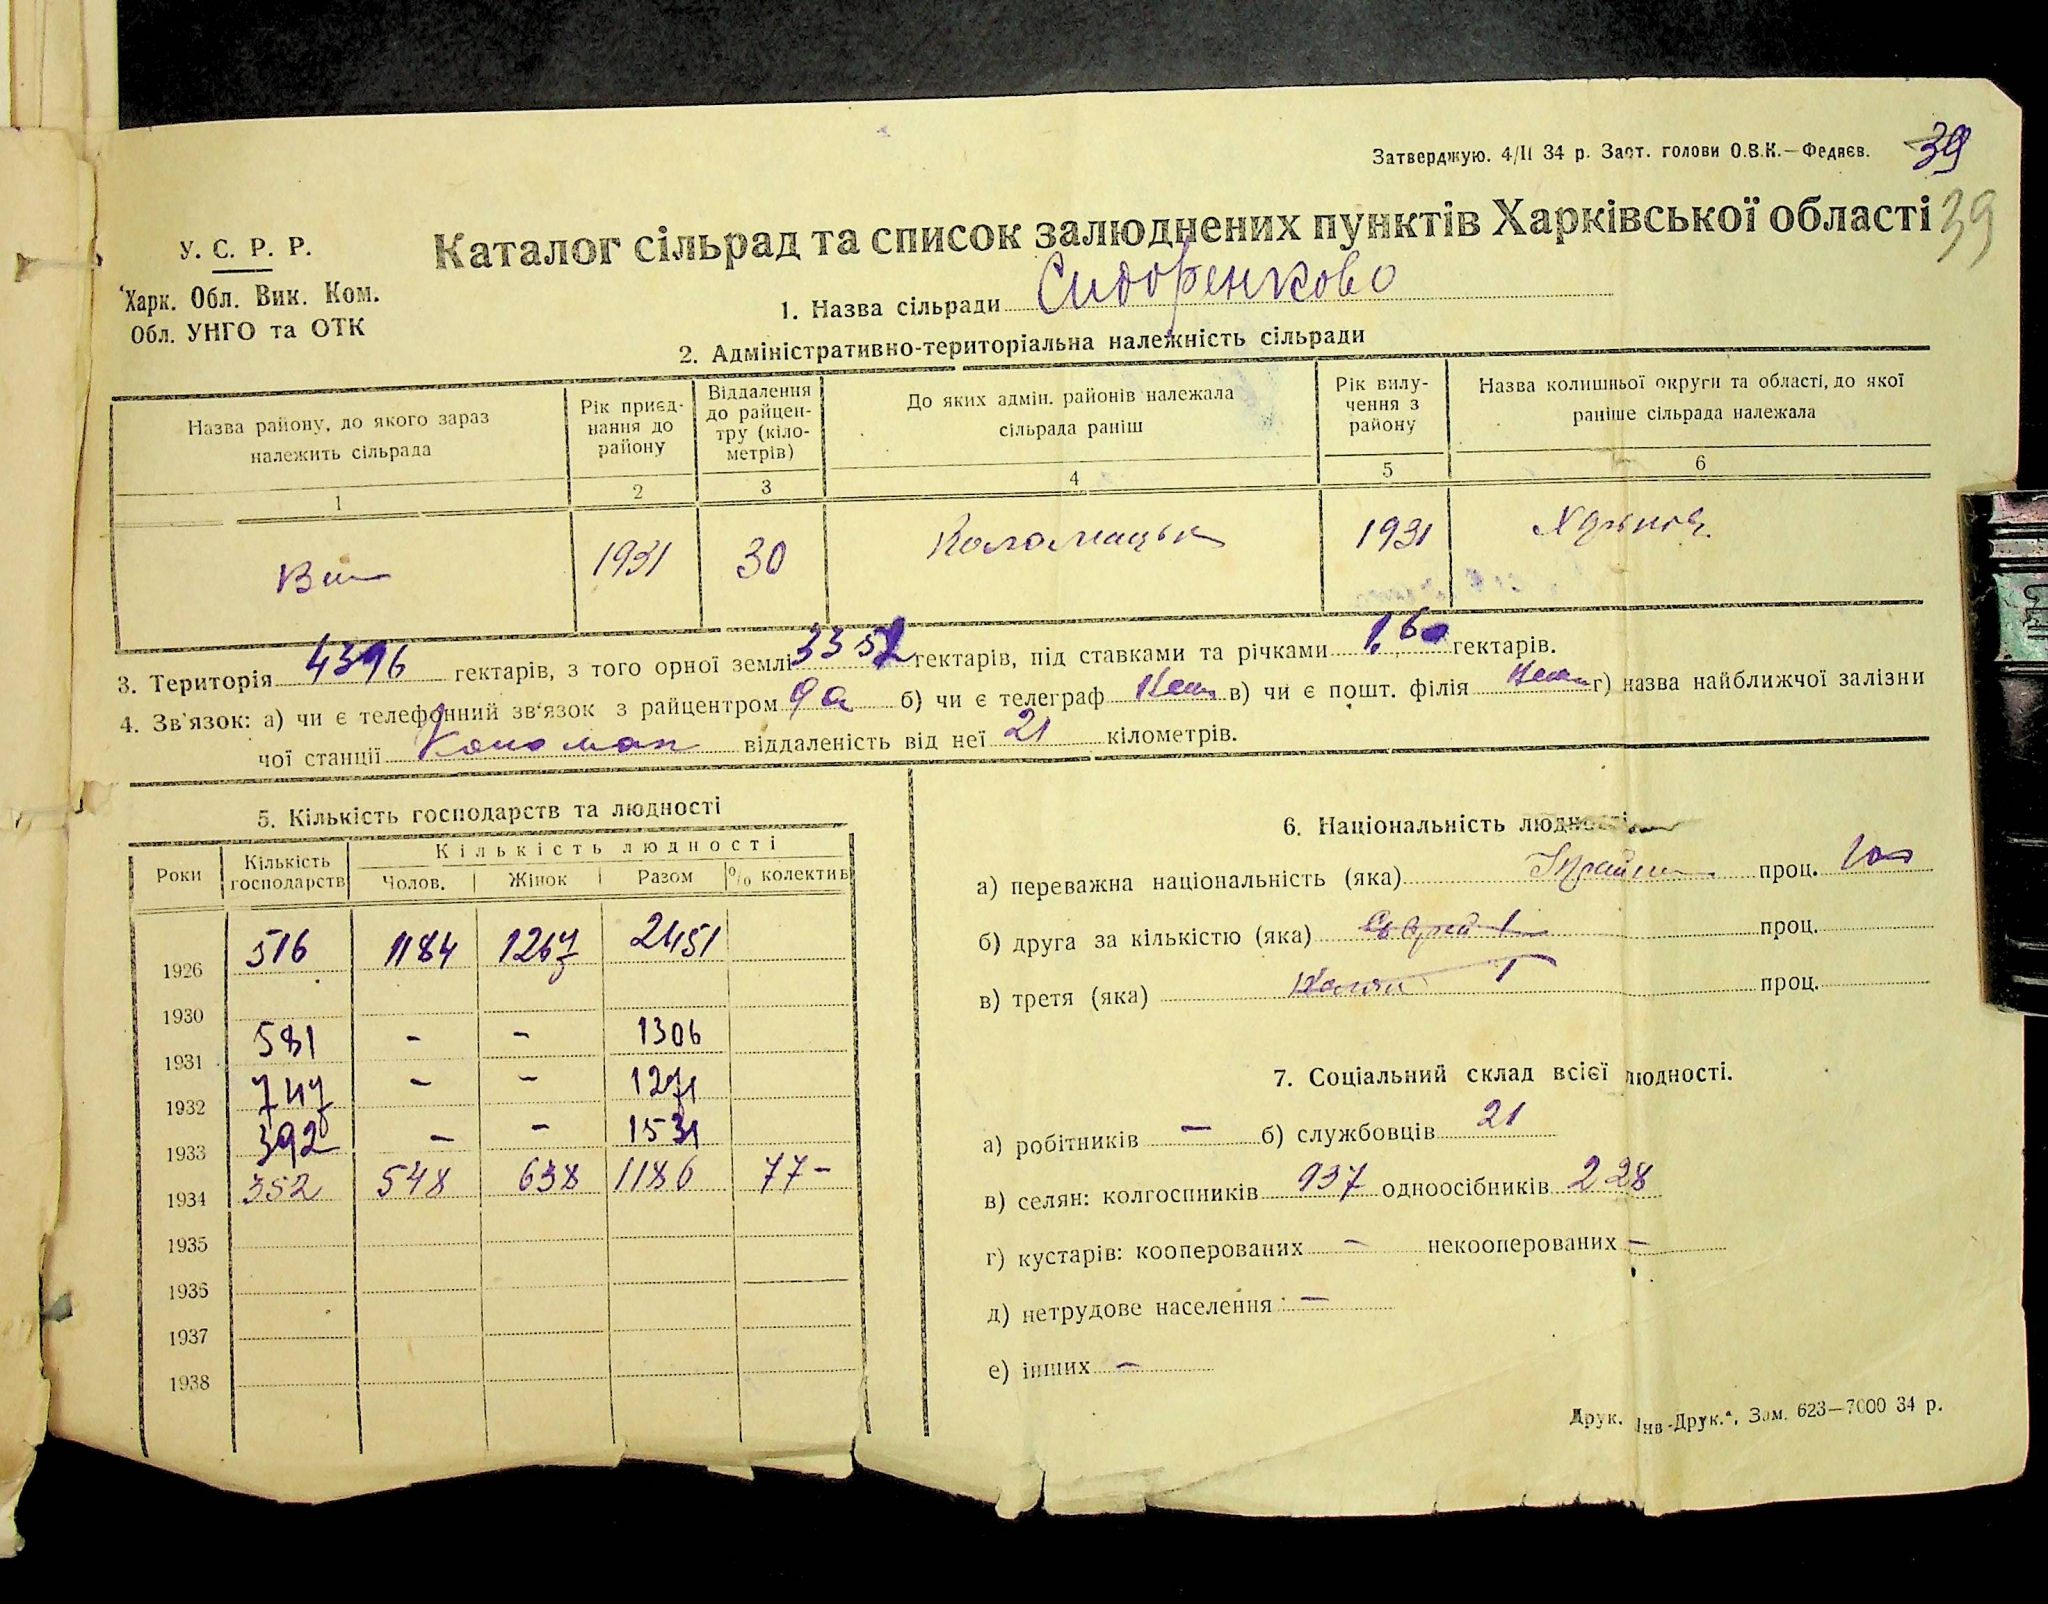 Затверджую. 4/II 34 р. Заст. голови О.В.К.—Федяєв.
39
39
У. С. Р. Р.
Харк. Обл. Вик. Ком.
Обл. УНГО та ОТК
Каталог сільрад та список залюднених пунктів Харківської області
1. Назва сільради Сидоренково
2. Адміністративно-територіальна належність сільради
Назва району, до якого зараз належить сільрада
Рік приєд-нання до району
Віддалення до райцен-тру (кіло-метрів)
До яких адмін. районів належала сільрада раніш
Рік вилу-чення з району
Назва колишньої округи та області, до якої раніше сільрада належала
1 2 3 4 5 6
1931 30 Коломацьк 1931 Харьков
3. Територія 4396 гектарів, з того орної землі 3352 гектарів, під ставками та річками гектарів.
4. Зв'язок: а) чи є телефонний зв'язок з райцентром б) чи є телеграф в) чи є пошт. філія г) назва найближчої залізни
чої станції віддаленість від неї 21 кілометрів.
5. Кількість господарств та людності
Роки Кількість господарств Кількість людності
Чолов. Жінок Разом % колектив
1926 516 1184 1267 2451
1930
1931 581 - - 1306
1932 747 - - 1271
1933 392 - - 1531
1934 352 548 638 1186 77-
1935
1936
1937
1938
6. Національність людності
а) переважна національність (яка) проц. 100
б) друга за кількістю (яка) проц.
в) третя (яка) проц.
7. Соціальний склад всієї людності.
а) робітників — б) службовців 21
в) селян: колгоспників 937 одноосібників 228
г) кустарів: кооперованих — некооперованих —
д) нетрудове населення —
е) інших —
Друк. „Інв-Друк.", Зам. 623—7000 34 р.